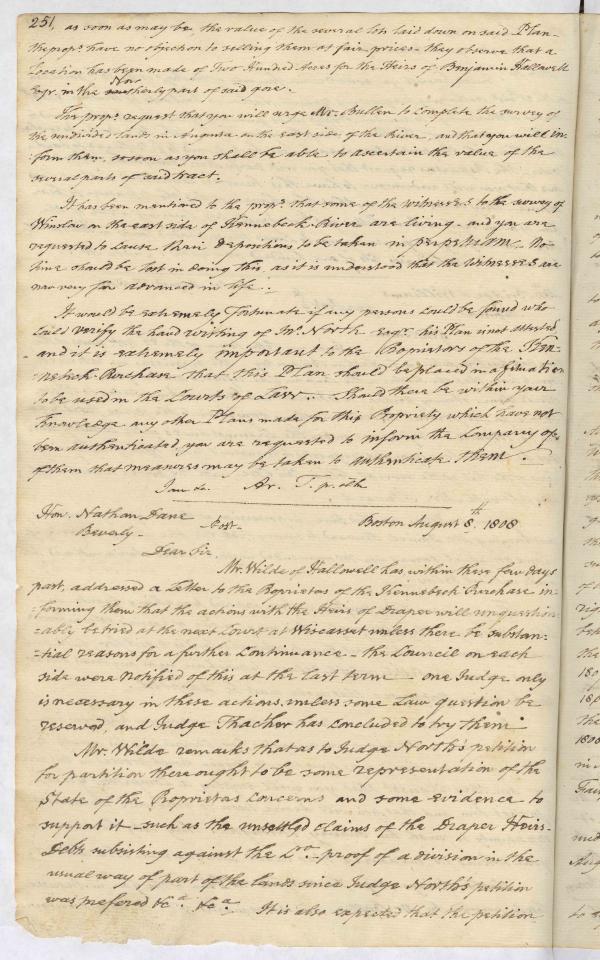 251, as soon as may be, the value of the several lots laid down on said Plan
the proprs have no objection to selling them at fair prices - they observe that a
Location has been made of Two Hundred Acres for the Heirs of Benjamin Hallowell
Esqr. in the Northerly part of said gore.
The propr. request that you will urge Mr. Bullen to complete the survey of
the undivided lands in Augusta on the east side of the River, and that you will in-
form them, so soon as you shall be able to ascertain the value of the
several parts of said tract.
It has been mentioned to the propr. that some of the witnesses to the survey of
Winslow on the east side of Kennebeck River are living - and you are
requested to cause their Depositions to be taken in perpetuam. No
time should be lost in doing this, as it is understood that the Witnesses are
now very far advanced in life.
It would be extremely fortunate if any persons could be found who
could verify the hand writing of Jno. North Esqr. his Plan is not attested
- and it is extremely important to the Proprietors of the Ken-
nebeck Purchase that this Plan should be placed in a situation
to be used in the Courts of Law. Should there be within your
Knowledge any other Plans made for this Propriety which have not
been authenticated, you are requested to inform the Company of
of them that measures may be taken to authenticate them.
I am &c. Ar. T. p. &c
Hon. Nathan Dane Boston August 8.th 1808
Beverly - Post -
Dear Sir,
Mr. Wilde of Hallowell has within these few days
past, addressed a Letter to the Proprietors of the Kennebeck Purchase in-
-forming them that the actions with the Heirs of Draper will unquestion-
-ably be tried at the next Court at Wiscasset unless there be substan-
-tial reasons for a further Continuance - the Council on each
side were notified of this at the last term - one Judge only
is necessary in these actions, unless some Law question be
reserved, and Judge Thacher has concluded to try them.
Mr. Wilde remarks that as to Judge North's petition
for partition there ought to be some representation of the
State of the Proprietors concerns and some evidence to
support it - such as the unsettled claims of the Draper Heirs -
Debts subsisting against the - proof of a division in the
usual way of part of the lands since Judge North's petition
was prefered &c.a &c.a It is also expected that the petition